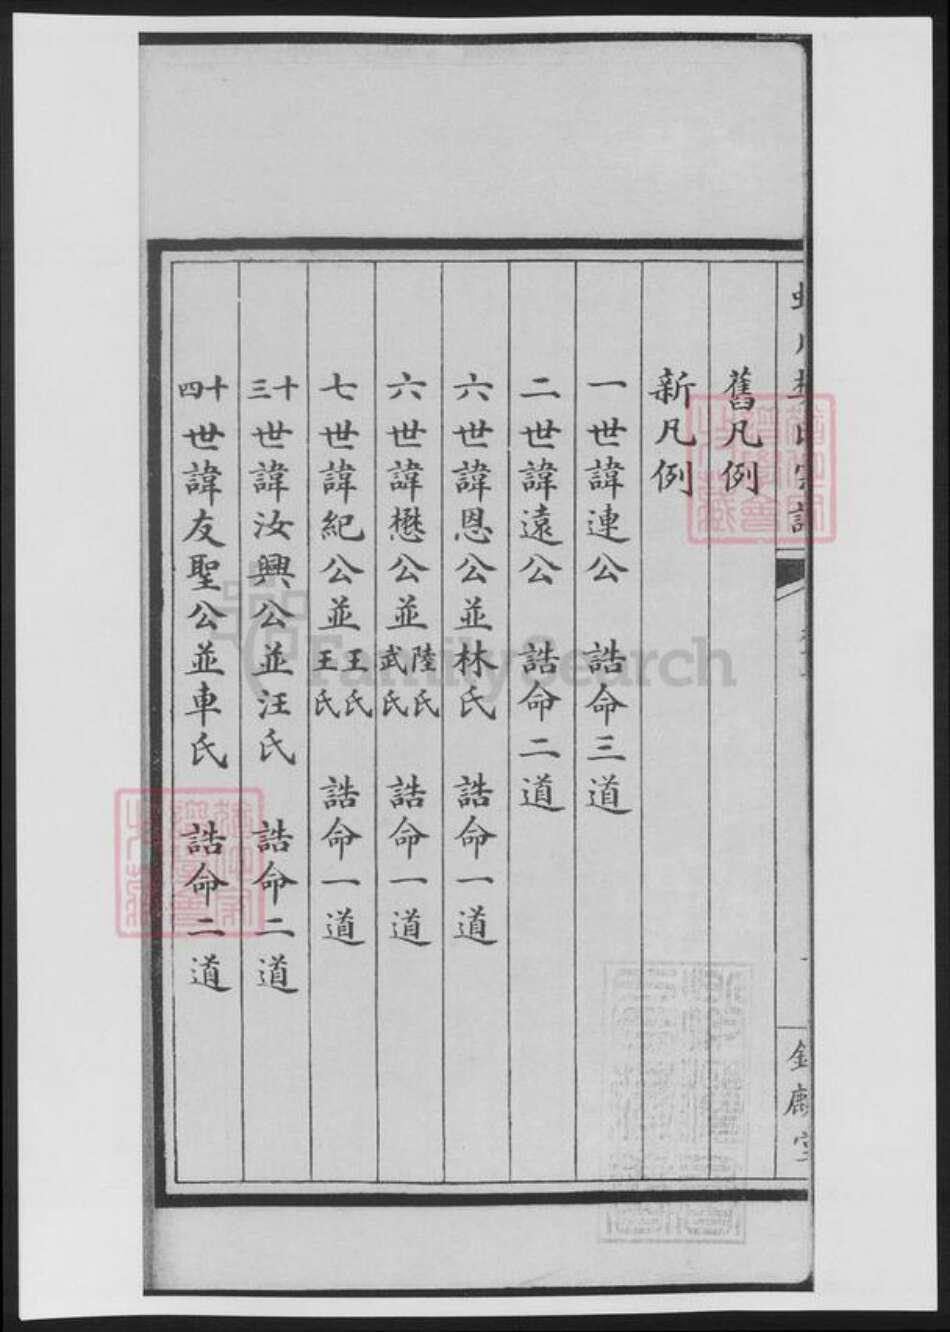 氏宗譜
金麟堂
舊凡例
新凡例
一世諱連公 誥命三道
二世諱遠公 誥命二道
六世諱恩公並林氏 誥命一道
六世諱懋公並陸氏武氏 誥命一道
七世諱紀公並王氏王氏 誥命一道
十三世諱汝興公並汪氏 誥命二道
十四世諱友聖公並車氏 誥命二道
FamilySearch